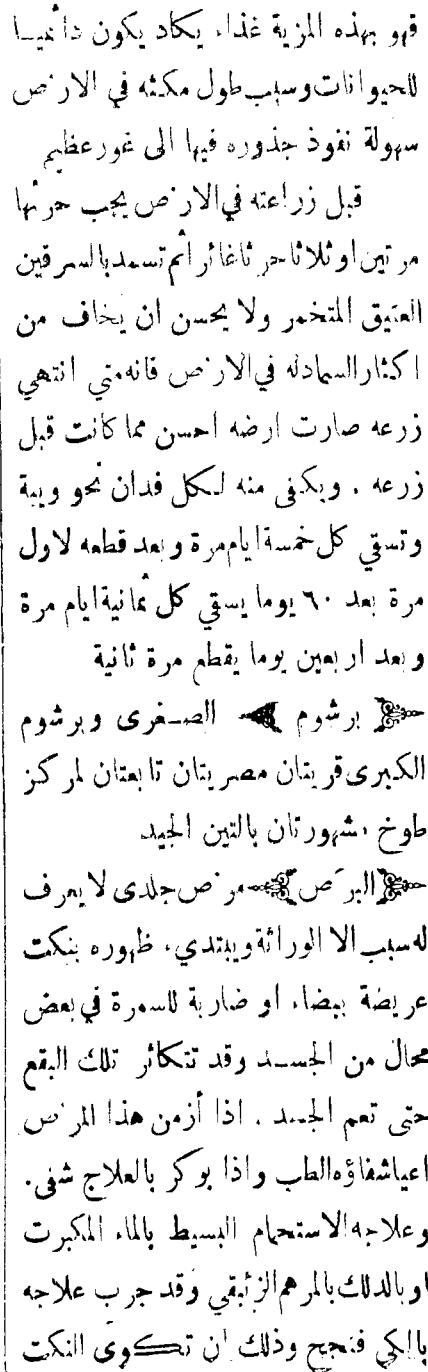 فهو بهذه المزية غذاء يكاد يكون دائميا
للحيوانات وسبب طول مكثه في الارض
سهولة نفوذ جذوره فيها الى غور عظيم
قبل زراعته في الارض يجب حرثها
مرتين او ثلاثا حرثا غائرا ثم تسمد بالسرقين
العتيق المتخمر ولا يحسن ان يخاف من
اكثار السماد له في الارض فانه متي انتهي
زرعه صارت ارضه احسن مما كانت قبل
زرعه . ويكفى منه لكل فدان نحو ويبة
وتسقي كل خمسة ايام مرة وبعد قطعه لاول
مرة بعد ٦٠ يوما يسقي كل ثمانية ايام مرة
وبعد اربعين يوما يقطع مرة ثانية
برشوم الصغرى وبرشوم
الكبرى قريتان مصريتان تابعتان لمركز
طوخ مشهورتان بالتين الجيد
البرَص مرض جلدى لا يعرف
له سبب الا الوراثة ويبتديء ظهوره بنكت
عريضة بيضاء او ضاربة للسمرة في بعض
محال من الجسد وقد تتكاثر تلك البقع
حتى تعم الجسد . اذا أزمن هذا المرض
اعيا شفاؤه الطب واذا بوكر بالعلاج شفى .
وعلاجه الاستحمام البسيط بالماء المكبرت
او بالدلك بالمرهم الزئبقي وقد جرب علاجه
بالكي فنجح وذلك ان تكوى النكت